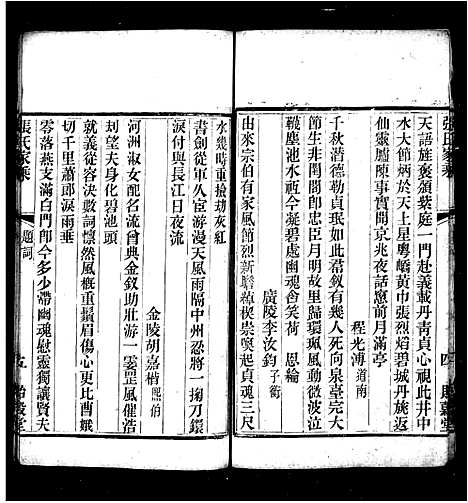 張氏家乘
天語旌褒頒紫庭一門赴義載丹靑貞心視此井中
水大節炳於天上星粵嶠黃巾張烈焰碧城丹旐返
仙靈臚陳軼事實開京兆夜話應前月滿亭
程光溥道南
千秋潛德勒貞珉不死向泉臺完大
節生非閨閣郎忠臣月明故里歸環珮風動微波泣
韈塵池水祗今凝碧歲幽魂常共井
廣陵李汝鈞子衡
由來宗伯有家風節烈新瞻綽楔崇奠起貞魂三尺
四
水幾時重搶劫灰紅
書劍從軍久宦游漫天風雨隔中州忍將一掬刀鐶
淚付與長江日夜流
金陵胡嘉楷熙伯
河洲淑女配名流曾典金釵助壯游一霎罡風催浩
刦望夫身化碧池頭
就義從容決數詞凜然風概重鬚眉傷心更比曹娥
切千里蕭郎淚雨垂
零落燕支滿白門卽今多少滯幽魂慰靈獨讓賢夫
張氏家乘
題詞
五